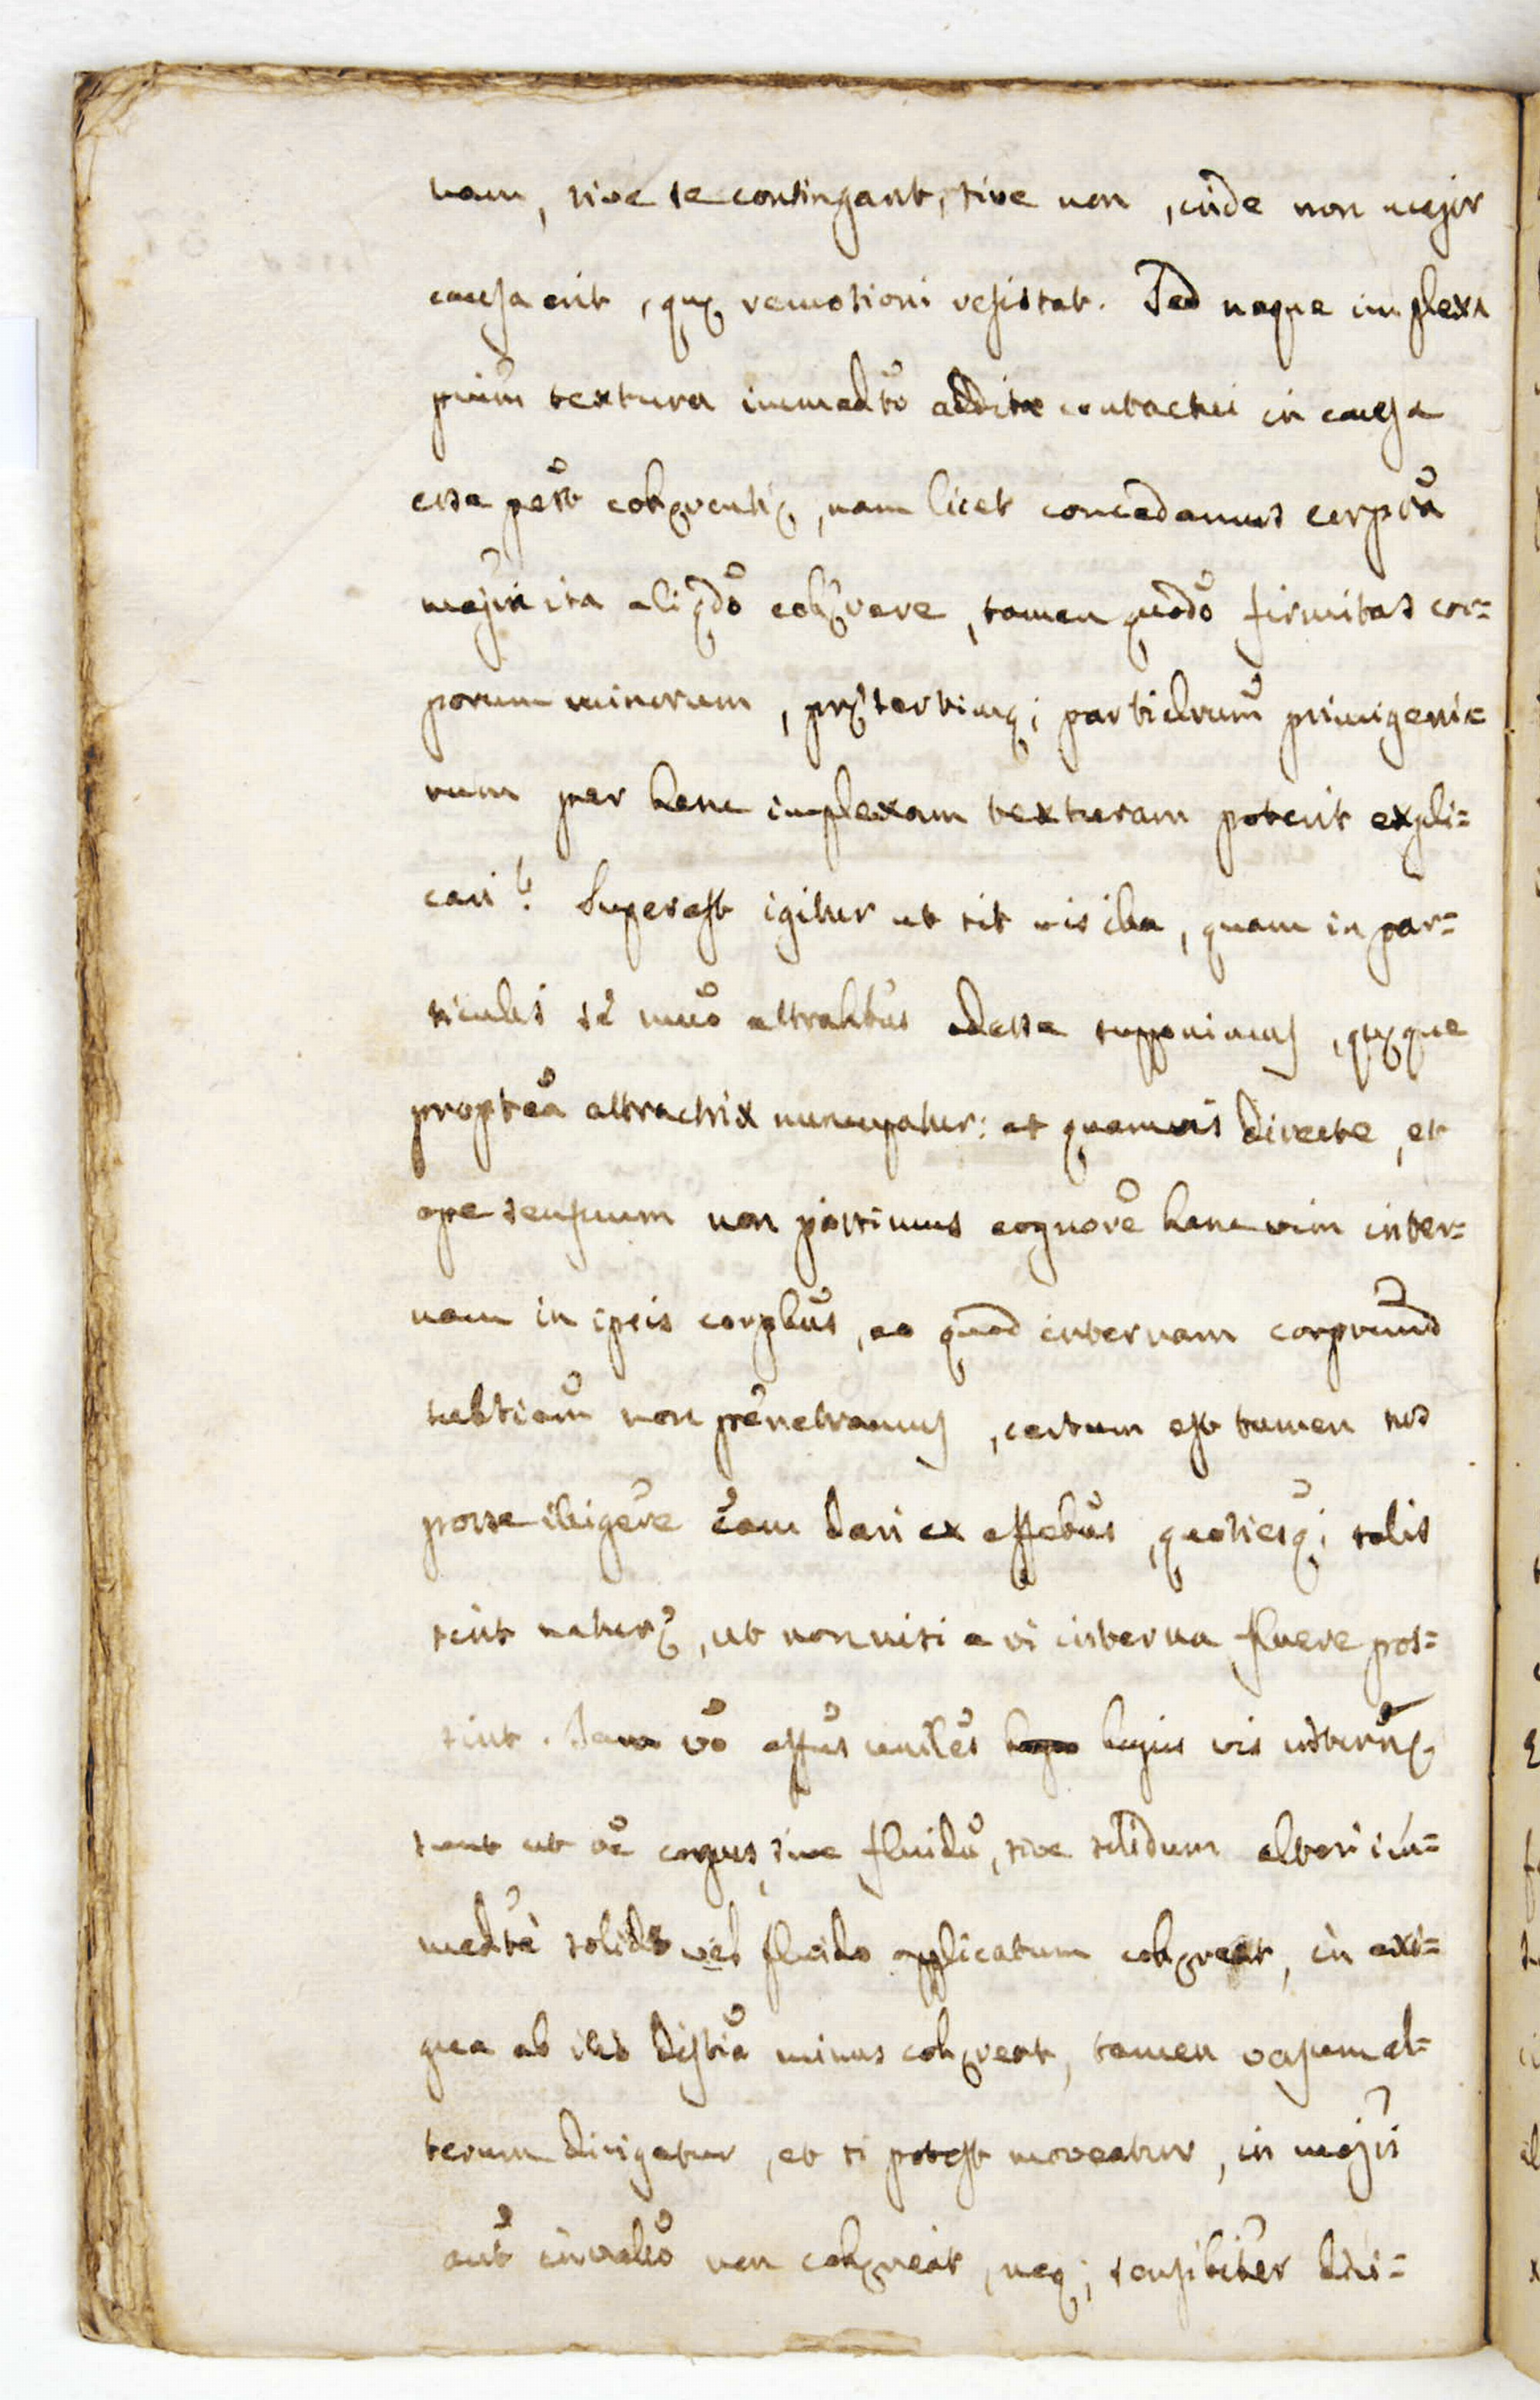 nam, sive se contingant, sive non, inde non major
causa erit, quę remotioni resistat. Sed neque implexa
ptium textura immedto addita contactui in causa
esse pott cohęrentię, nam licet concedamus corpora
majora ita aliqdo cohęrere, tamen quodo firmitas cor=
porum minorum, pręsertimq; particlrum primigenia=
rum per hanc implexam texturam poterit expli=
cari? Superest igitur ut sit vis illa, quam in par=
ticulis se muo attrahtbus adesse supponimus, quęque
proptea attractrix nuncupatur: at quamvis directe, et
ope sensuum non possimus cognore hanc vim inter=
nam in ipsis corpbus, eo quod internam corprum
subtiam non penetramus, certum est tamen nos
posse itligere eam dari ex effebus, quotiesq; talis
sint naturę, ut non nisi a vi interna fluere pos=
sint. Iam vo effus uniles hujus vis internę
sunt ut oe corpus, sive fluidu, sive solidum alteri im=
medte solido vel fluido applicatum cohęreat, in exi=
gua ab illo distia minus cohęreat, tamen versum al=
terum dirigatur, et si potest moveatur, in majri
aut intvallo non cohęreat, neq; sensibiter diri=